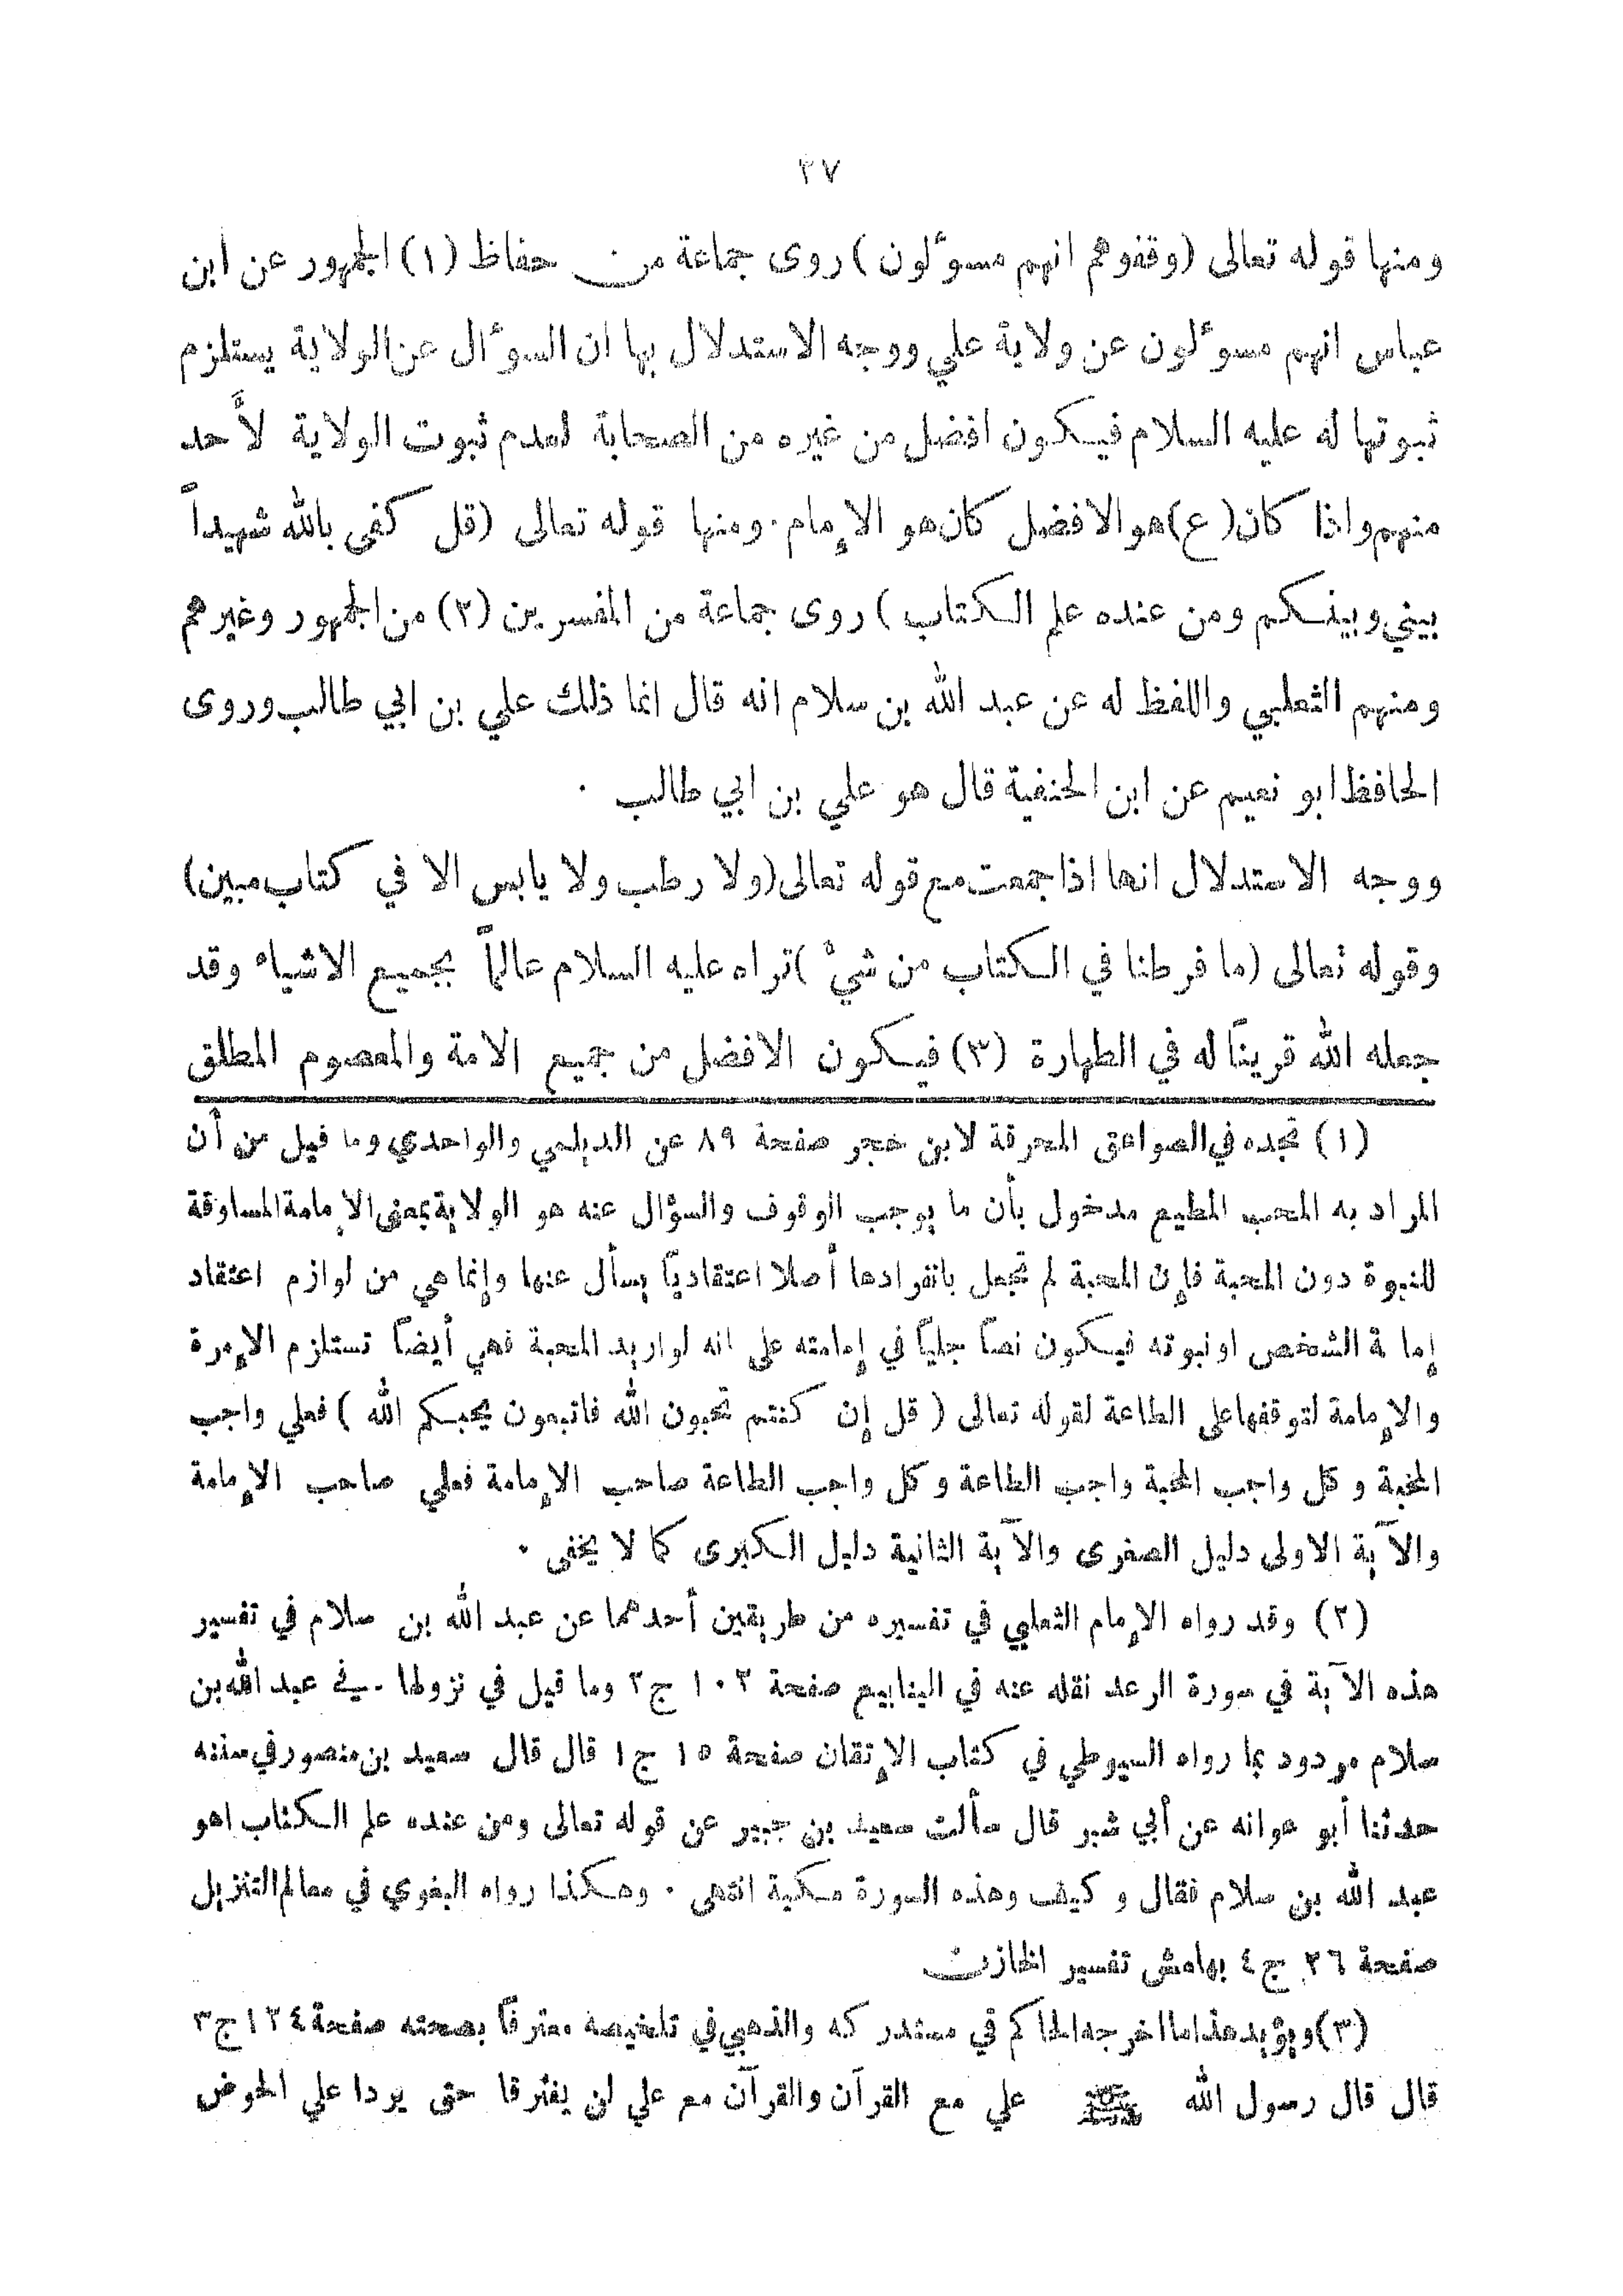 ٣٧
ومنها قوله تعالى (وقفوهم انهم مسؤلون) روى جماعة من حفاظ (١) الجمهور عن ابن
عباس انهم مسؤلون عن ولاية علي ووجه الاستدلال بها ان السؤال عن الولاية يستلزم
ثبوتها له عليه السلام فيكون افضل من غيره من الصحابة لعدم ثبوت الولاية لأحد
منهم واذا كان (ع) هو الافضل كان هو الإمام. ومنها قوله تعالى (قل كفى بالله شهيداً
بيني وبينكم ومن عنده علم الكتاب) روى جماعة من المفسرين (٢) من الجمهور وغيرهم
ومنهم الثعلبي واللفظ له عن عبد الله بن سلام انه قال انما ذلك علي بن ابي طالب وروى
الحافظ ابو نعيم عن ابن الحنفية قال هو علي بن ابي طالب .
ووجه الاستدلال انها اذا جمعت مع قوله تعالى (ولا رطب ولا يابس الا في كتاب مبين)
وقوله تعالى (ما فرطنا في الكتاب من شيء) تراه عليه السلام عالماً بجميع الاشياء وقد
جعله الله قريناً له في الطهارة (٣) فيكون الافضل من جميع الامة والمعصوم المطلق
(١) تجده في الصواعق المحرقة لابن حجر صفحة ٨٩ عن الديلمي والواحدي وما قيل من أن
المراد به المحب المطيع مدخول بأن ما يوجب الوقوف والسؤال عنه هو الولاية بمعنى الإمامة المساوقة
للنبوة دون المحبة فإن المحبة لم تجعل بانفرادها أصلا اعتقادياً يسأل عنها وإنما هي من لوازم اعتقاد
إمامة الشخص او نبوته فيكون نصاً جلياً في إمامته على انه لو اريد المحبة فهي أيضاً تستلزم الإمرة
والإمامة لتوقفها على الطاعة لقوله تعالى (قل إن كنتم تحبون الله فاتبعون يحببكم الله) فعلي واجب
المحبة وكل واجب المحبة واجب الطاعة وكل واجب الطاعة صاحب الإمامة فعلي صاحب الإمامة
والآية الاولى دليل الصغرى والآية الثانية دليل الكبرى كما لا يخفى .
(٢) وقد رواه الإمام الثعلبي في تفسيره من طريقين أحدهما عن عبد الله بن سلام في تفسير
هذه الآية في سورة الرعد نقله عنه في الينابيع صفحة ١٠٣ ج٢ وما قيل في نزولها في عبد الله بن
سلام مردود بما رواه السيوطي في كتاب الإتقان صفحة ١٥ ج١ قال قال سعيد بن منصور في سننه
حدثنا أبو عوانه عن أبي شبر قال سألت سعيد بن جبير عن قوله تعالى ومن عنده علم الكتاب اهو
عبد الله بن سلام فقال وكيف وهذه السورة مكية انتهى . وهكذا رواه البغوي في معالم التنزيل
صفحة ٢٦ ج٤ بهامش تفسير الخازن
(٣) ويؤيد هذا ما اخرجه الحاكم في مستدركه والذهبي في تلخيصه معترفاً بصحته صفحة ١٢٤ ج٣
قال قال رسول الله ﷺ علي مع القرآن والقرآن مع علي لن يفترقا حتى يردا علي الحوض